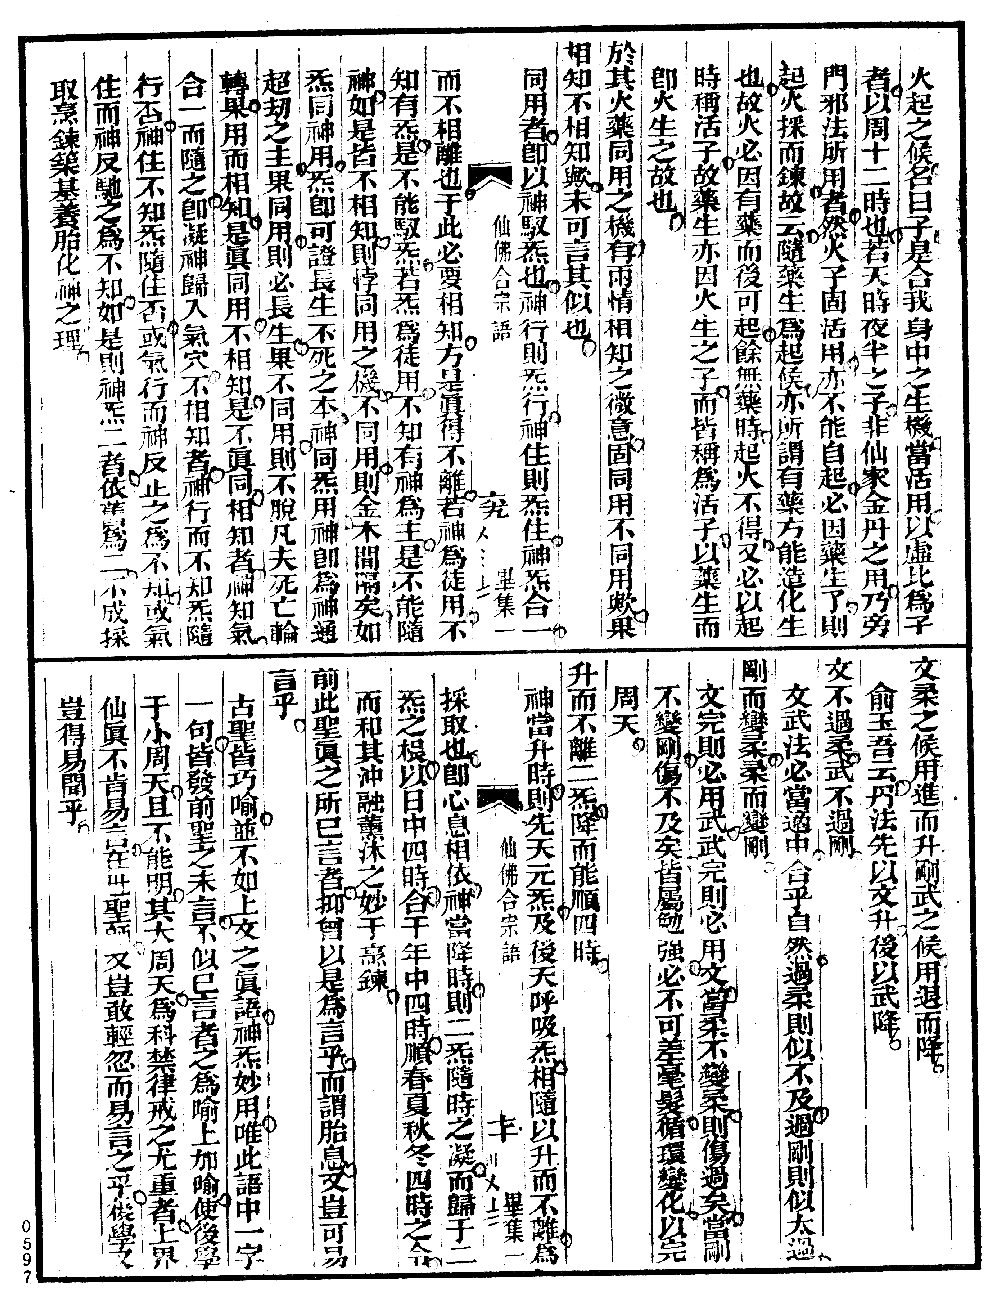 火起之候名曰子是合我身中之生機當活用以虛比爲子
者以周十二時也若天時夜半之子非仙家金丹之用乃旁
門邪法所用者然火子固活用亦不能自起必因藥生了則
起火採而鍊故云隨藥生爲起候亦所謂有藥方能造化生
也故火必因有藥而後可起餘無藥時起火不得又必以起
時稱活子故藥生亦因火生之子而皆稱爲活子以藥生而
卽火生之故也
於其火藥同用之機有兩情相知之微意固同用不同用歟果
相知不相知歟未可言其似也
同用者卽以神馭炁也神行則炁行神住則炁住神炁合一
仙佛合宗語 畢集一
而不相離也于此必要相知方是眞得不離若神爲徒用不
知有炁是不能馭炁若炁爲徒用不知有神爲主是不能隨
神如是皆不相知則悖同用之機不同用則金木間隔矣如
炁同神用炁卽可證長生不死之本神同炁用神卽爲神通
超劫之主果同用則必長生果不同用則不脫凡夫死亡輪
轉果用而相知是眞同用不相知是不眞同相知者神知氣
合一而隨之卽凝神歸入氣穴不相知者神行而不知炁隨
行否神住不知炁隨住否或氣行而神反止之爲不知或氣
住而神反馳之爲不知如是則神炁二者依舊爲二不成採
取烹鍊築基養胎化神之理
文柔之候用進而升剛武之候用退而降
俞玉吾云丹法先以文升後以武降
文不過柔武不過剛
文武法必當適中合乎自然過柔則似不及過剛則似太過
剛而變柔柔而變剛
文完則必用武武完則必用文當柔不變柔則傷過矣當剛
不變剛傷不及矣皆屬勉强必不可差毫髮循環變化以完
周天
升而不離二炁降而能順四時
神當升時則先天元炁及後天呼吸炁相隨以升而不離爲
採取也卽心息相依神當降時則二炁隨時之凝而歸于二
仙佛合宗語 畢集一
炁之根以日中四時合于年中四時順春夏秋冬四時之令
而和其沖融薰沐之妙于烹鍊
前此聖眞之所已言者抑曾以是爲言乎而謂胎息又豈可易
言乎
古聖皆巧喻並不如上文之眞語神炁妙用唯此語中一字
一句皆發前聖之未言不似已言者之爲喻上加喻使後學
于小周天且不能明其大周天爲科禁律戒之尤重者上界
仙眞不肯易言在世聖 又豈敢輕忽而易言之乎後學
豈得易聞乎
0597